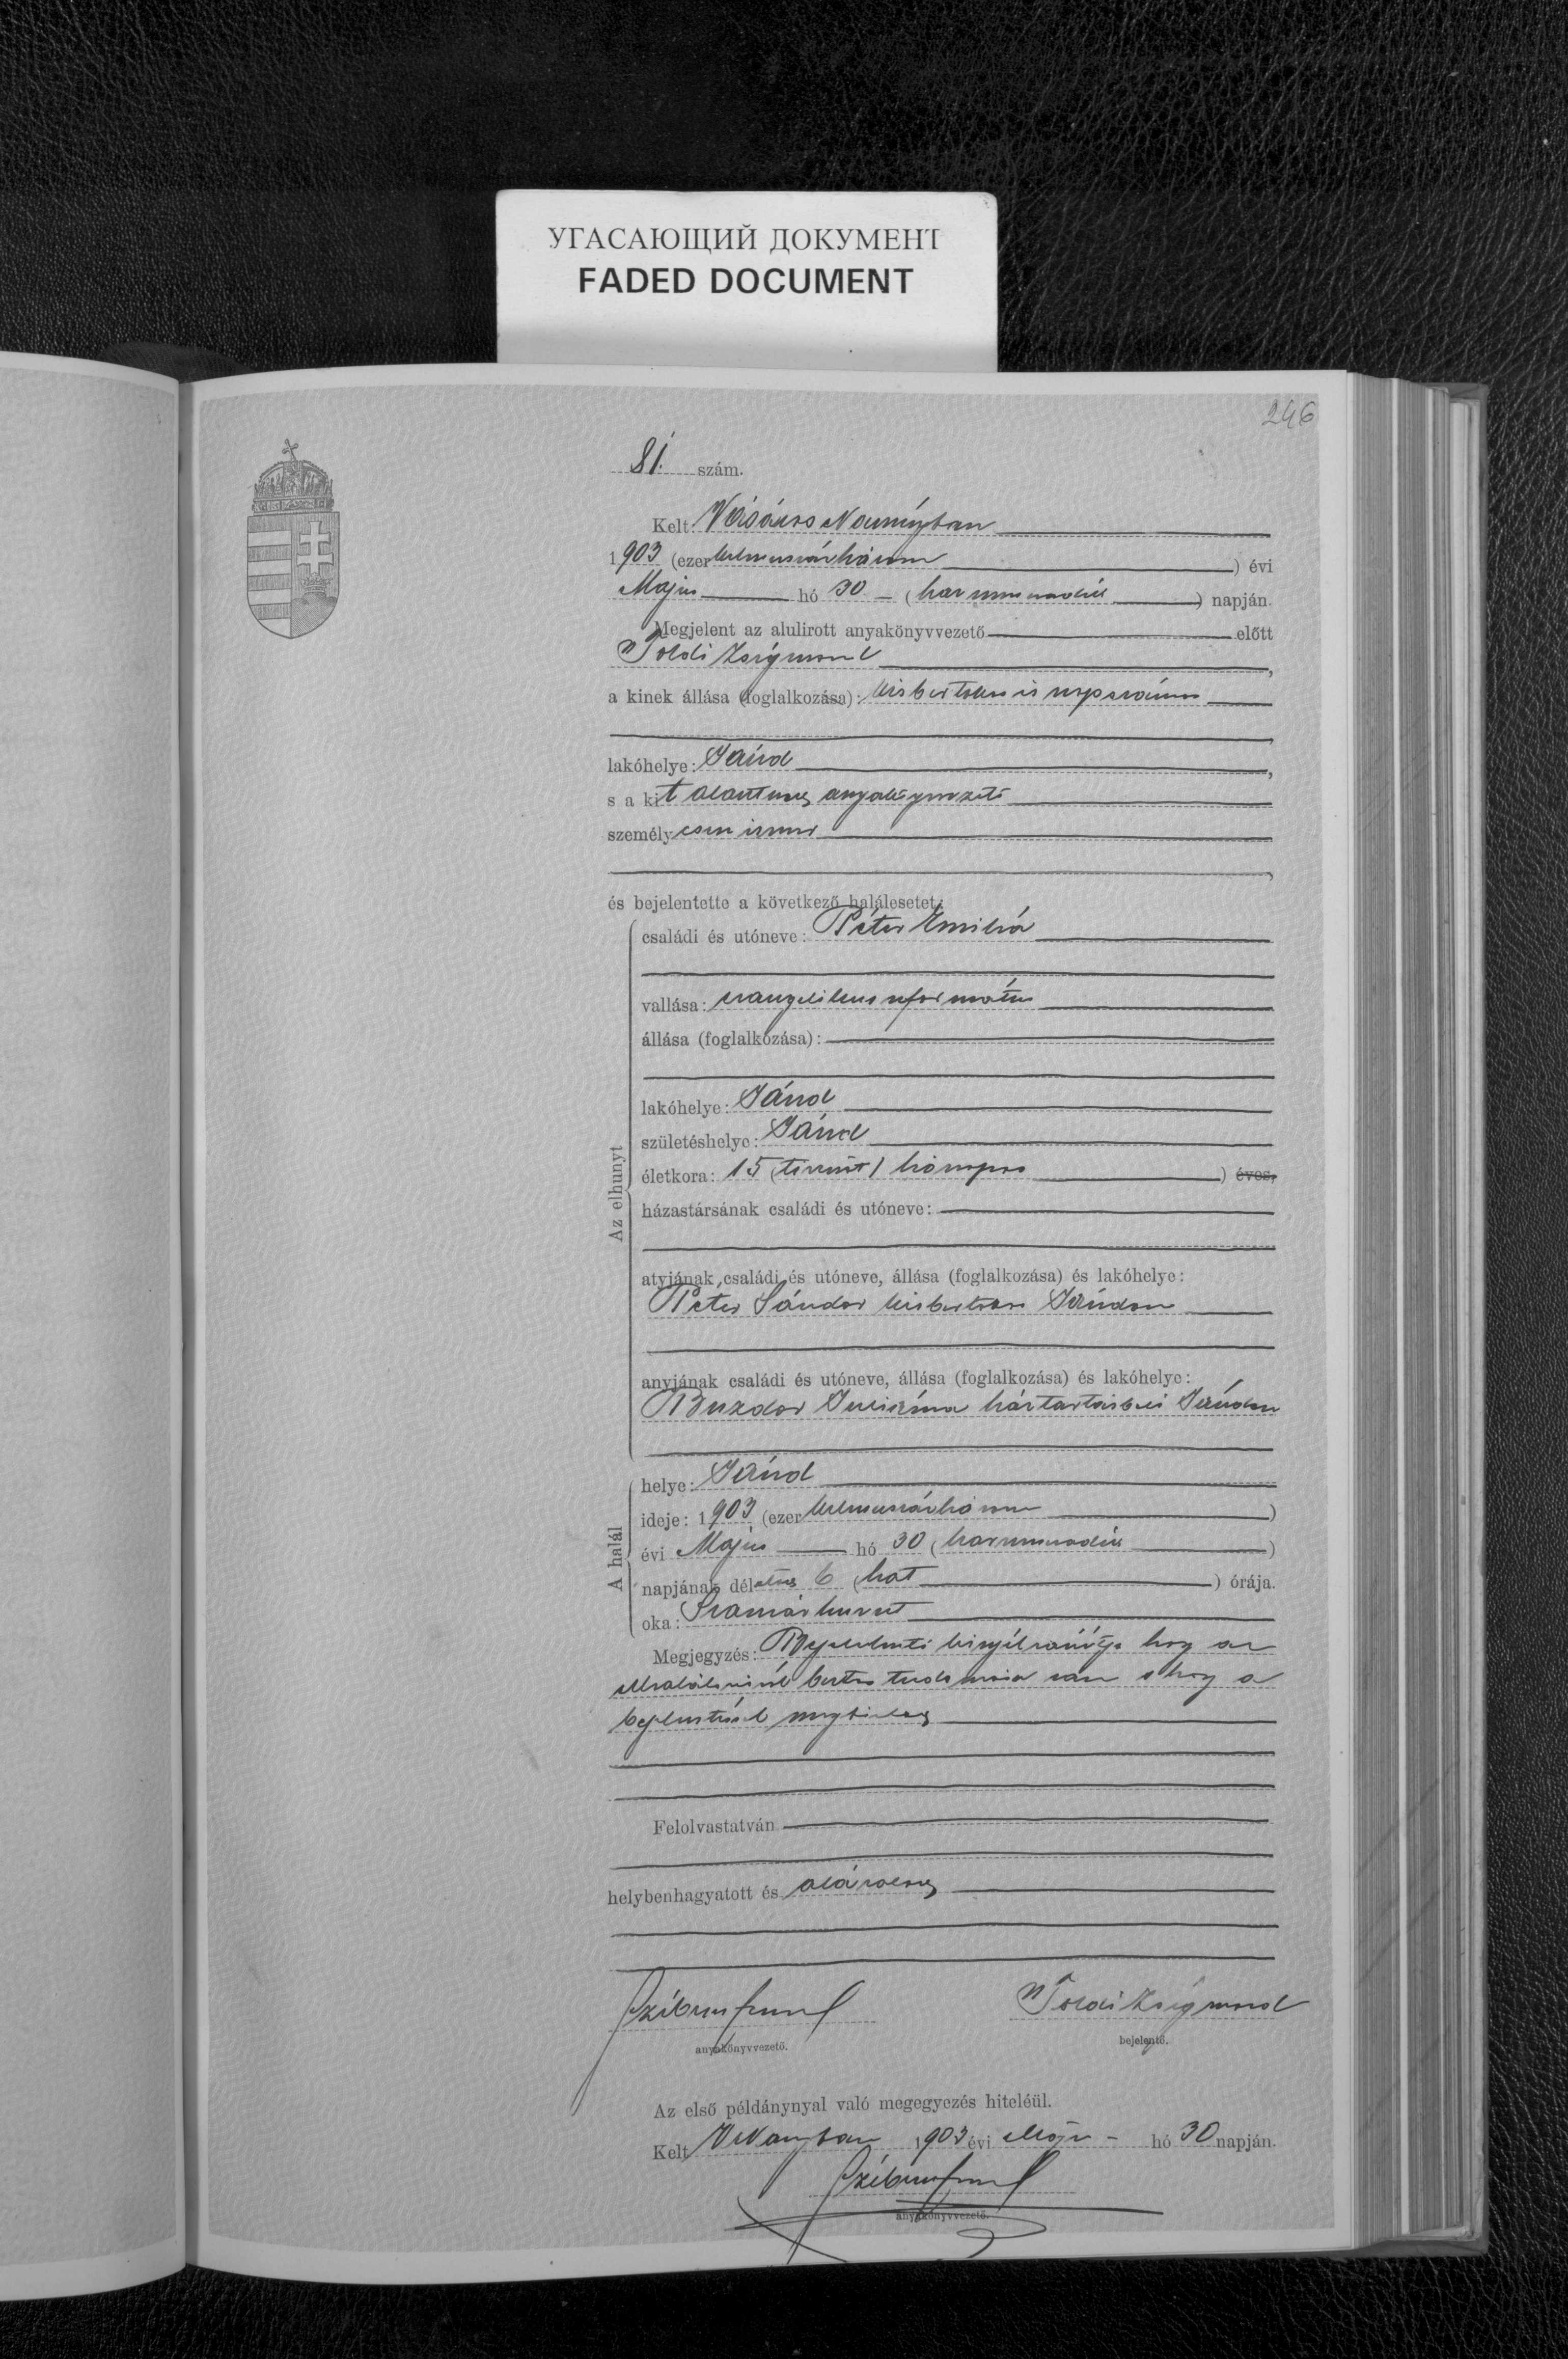 УГАСАЮЩИЙ ДОКУМЕНТ
FADED DOCUMENT
246
81. szám.
Kelt Vásáros Naményban
1903 (ezerkilenczszázhárom) évi
Május hó 30 (harminczadik) napján.
Megjelent az alulirott anyakönyvvezető előtt
Toldi Zsigmond,
a kinek állása (foglalkozása): kisbirtokos és napszámos
lakóhelye: Jánd,
s a kit alantirt anyakönyvvezető
személyesen ismer
és bejelentette a következő halálesetet:
Az elhunyt
családi és utóneve: Péter Emilia
vallása: evangelikus református
állása (foglalkozása):
lakóhelye: Jánd
születéshelye: Jánd
életkora: 15 (tizenöt) hónapos) éves,
házastársának családi és utóneve:
atyjának családi és utóneve, állása (foglalkozása) és lakóhelye:
Péter Sándor kisbirtokos Jándon
anyjának családi és utóneve, állása (foglalkozása) és lakóhelye:
Buzdor Juliánna háztartásbeli Jándon
A halál
helye: Jánd
ideje: 1903 (ezerkilenczszázhárom)
évi Május hó 30 (harminczadik)
napjának délelőtti 6 (hat) órája.
oka: Szamárhurut
Megjegyzés: Bejelentő kinyilvánítja hogy az
elhalálozásról biztos tudomása van s hogy a
bejelentésé
Felolvastatván
helybenhagyatott és aláiratott
Toldi Zsigmond
anyakönyvvezető.
bejelentő.
Az első példánynyal való megegyezés hiteléül.
Kelt VNaményban 1903 évi Május hó 30 napján.
anyakönyvvezető.